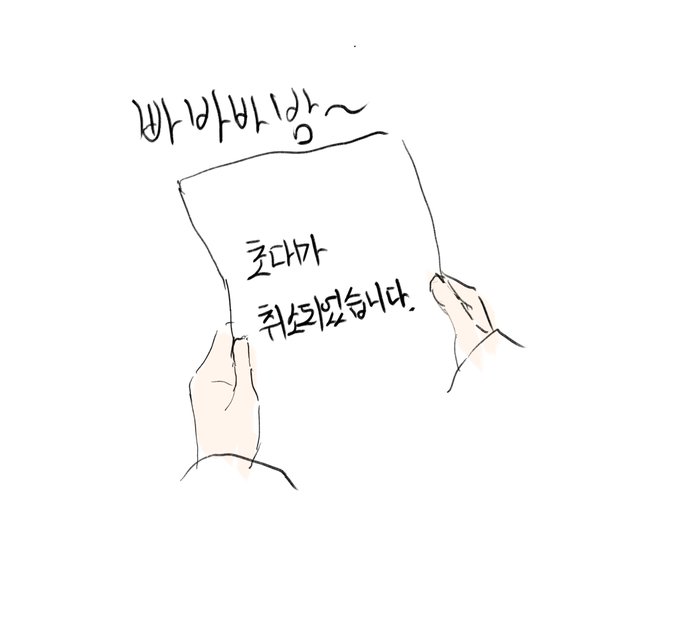 빠바바밤~
초대가
취소되었습니다.